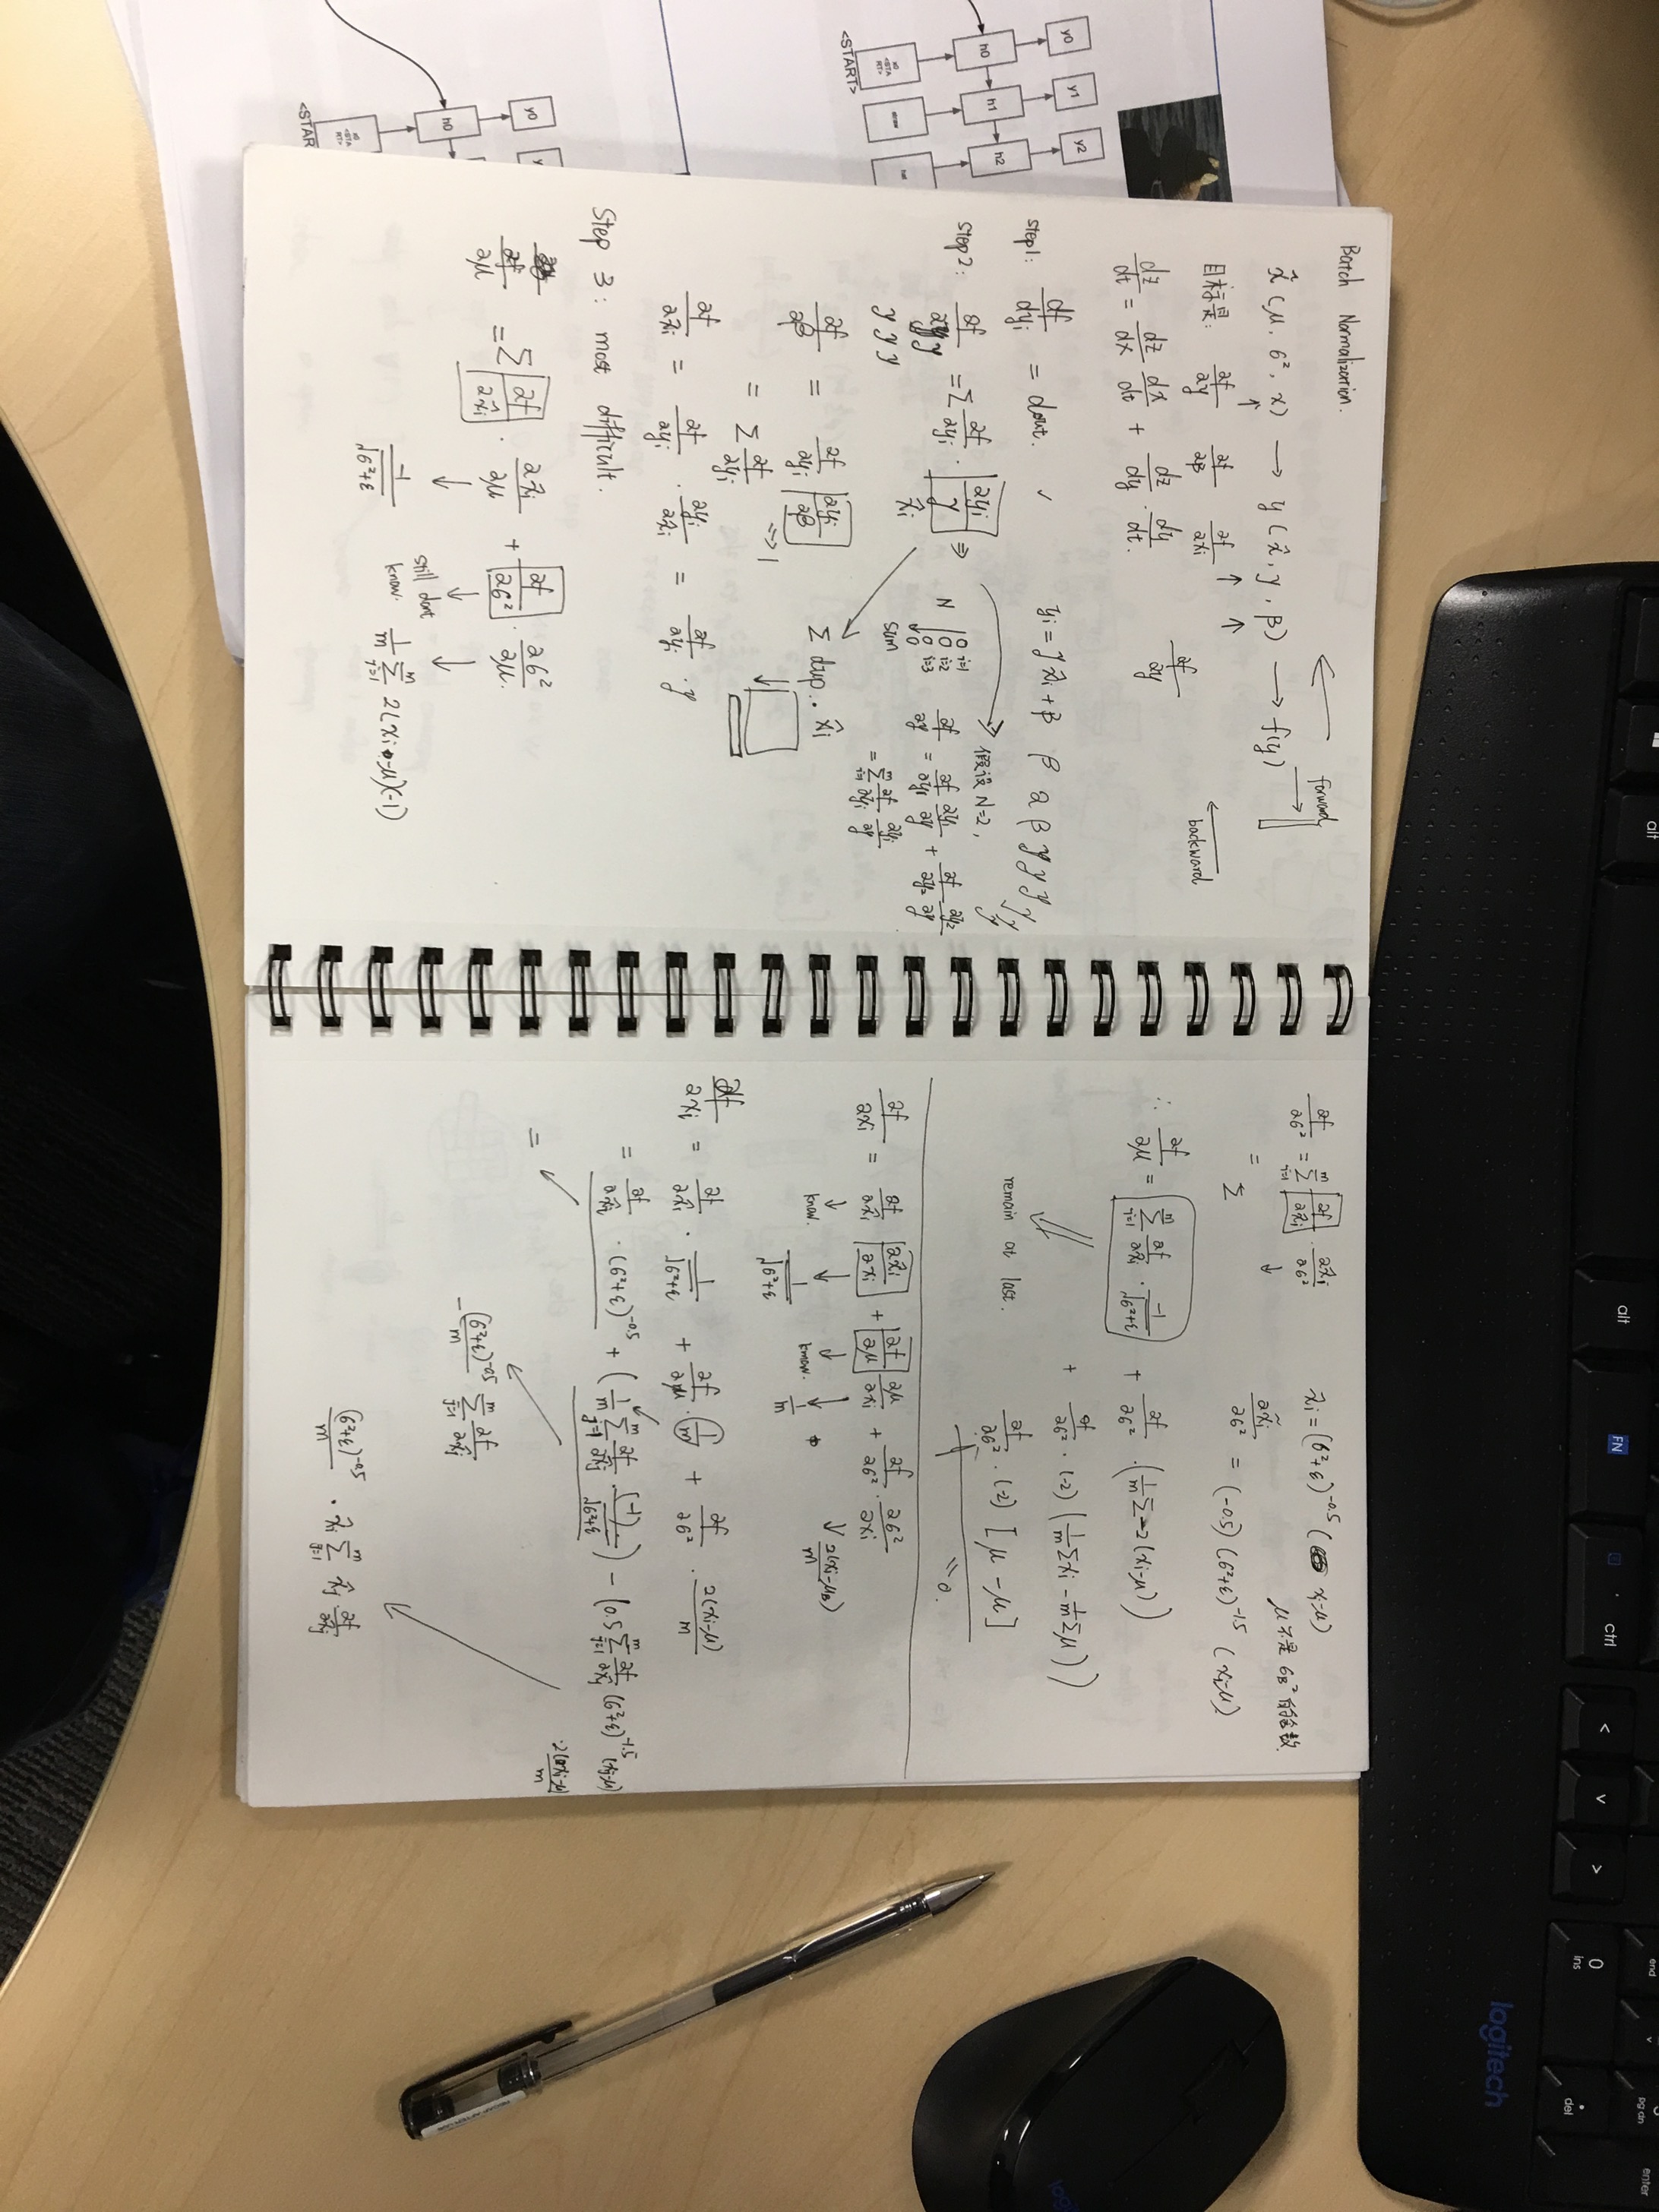 Batch Normalization.
x̂ (μ, σ², x) → y (x̂, γ, β) → f(y)
forward
目标是: ∂f/∂γ ∂f/∂β ∂f/∂x̂i
∂f/∂y
backward
dz/dt = dz/dx dx/dt + dz/dy · dy/dt.
Step1: df/dyi = dout. ✓
yi = γ x̂i + β β α β γ γ γ γ
Step2: ∂f/∂γ = Σ ∂f/∂yi · ∂yi/γ ⇒
x̂i
γ γ γ
假设 N=2,
∂f/∂γ = ∂f/∂y1 ∂y1/∂γ + ∂f/∂y2 ∂y2/∂γ
= Σ_{i=1}^{m} ∂f/∂yi ∂yi/∂γ
N
0 i=1
0 i=2
0 i=3
sum
∂f/∂β = ∂f/∂yi ∂yi/∂β ⇒ 1
= Σ ∂f/∂yi
Σ dyp · x̂i
∂f/∂x̂i = ∂f/∂yi · ∂yi/∂x̂i = ∂f/∂yi · γ
Step 3: most difficult.
∂f/∂μ = Σ ∂f/∂x̂i · ∂x̂i/∂μ + ∂f/∂σ² · ∂σ²/∂μ.
-1/√(σ²+ε)
still dont
know.
1/m Σ_{i=1}^{m} 2(xi-μ)(-1)
∂f/∂σ² = Σ_{i=1}^{m} ∂f/∂x̂i · ∂x̂i/∂σ²
x̂i = (σ²+ε)^-0.5 (xi-μ)
μ不是 σB² 的函数.
= Σ
∂x̂i/∂σ² = (-0.5) (σ²+ε)^-1.5 (xi-μ)
∴ ∂f/∂μ = Σ_{i=1}^{m} ∂f/∂x̂i · -1/√(σ²+ε) + ∂f/∂σ² · (1/m Σ -2(xi-μ))
+ ∂f/∂σ² · (-2) (1/m Σxi - 1/m Σμ))
remain at last.
∂f/∂σ² · (-2) [μ - μ]
= 0.
∂f/∂xi = ∂f/∂x̂i ∂x̂i/∂xi + ∂f/∂μ ∂μ/∂xi + ∂f/∂σ² · ∂σ²/∂xi
know. 1/√(σ²+ε) know. 1/m 2(xi-μB)/m
∂f/∂xi = ∂f/∂x̂i · 1/√(σ²+ε) + ∂f/∂μ · 1/m + ∂f/∂σ² · 2(xi-μ)/m
= ∂f/∂x̂i · (σ²+ε)^-0.5 + (1/m Σ_{j=1}^{m} ∂f/∂x̂j · (-1)/√(σ²+ε)) - (0.5 Σ_{j=1}^{m} ∂f/∂x̂j (σ²+ε)^-1.5 (xj-μ)
· 2(xi-μ)/m
=
- (σ²+ε)^-0.5/m Σ_{j=1}^{m} ∂f/∂x̂j
(σ²+ε)^-0.5/m · x̂i Σ_{j=1}^{m} x̂j ∂f/∂x̂j
y0 y1 y2
h0 h1 h2
x0
<STA
RT>
straw
hat
<START>
y0
h0
x0
<STA
RT>
<STAR
alt
alt
FN
ctrl
<
>
0
ins
del
end
pg dn
enter
logitech